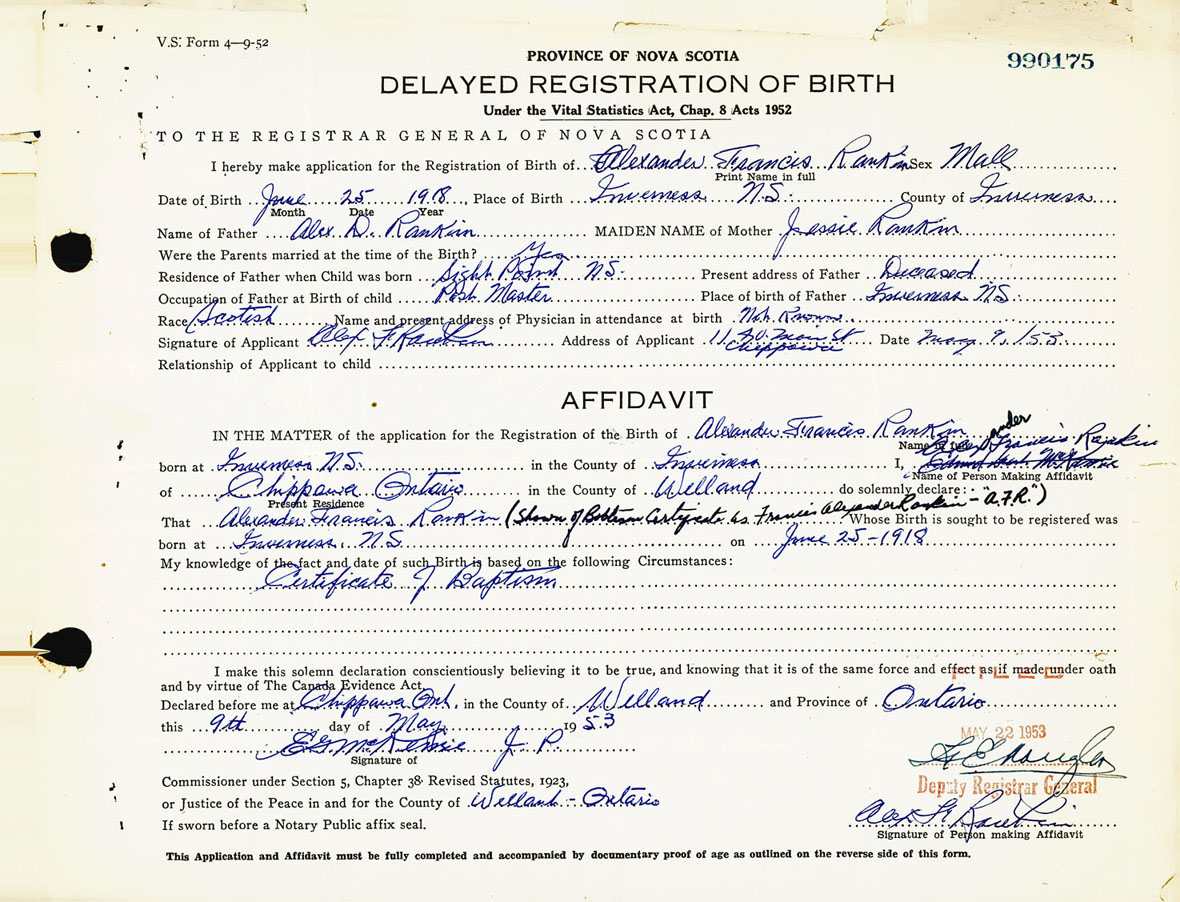 V.S. Form 4—9-52
PROVINCE OF NOVA SCOTIA
990175
DELAYED REGISTRATION OF BIRTH
Under the Vital Statistics Act, Chap. 8 Acts 1952
TO THE REGISTRAR GENERAL OF NOVA SCOTIA
I hereby make application for the Registration of Birth of Alexander Francis Rankin Sex Mall
Print Name in full
Date of Birth June 25 1918, Place of Birth Inverness N.S. County of Inverness
Month Date Year
Name of Father Alex D. Rankin MAIDEN NAME of Mother Jessie Rankin
Were the Parents married at the time of the Birth? Yes
Residence of Father when Child was born Sight Point N.S. Present address of Father Deceased
Occupation of Father at Birth of child Post Master Place of birth of Father Inverness N.S.
Race Scotish Name and present address of Physician in attendance at birth Not Known
Signature of Applicant Alex F Rankin Address of Applicant Main St Date May 9/53
Chippawa
Relationship of Applicant to child
AFFIDAVIT
IN THE MATTER of the application for the Registration of the Birth of Alexander Francis Rankin
Name in full
born at Inverness N.S. in the County of Inverness I, Alexander Francis Rankin
Name of Person Making Affidavit
of Chippawa Ontario in the County of Welland do solemnly declare:
Present Residence
That Alexander Francis Rankin (Shown of Babtism Certificate as Francis Alexander Rankin - A.F.R.) Whose Birth is sought to be registered was
born at Inverness. N.S. on June 25-1918
My knowledge of the fact and date of such Birth is based on the following Circumstances:
Certificate of Baptism
I make this solemn declaration conscientiously believing it to be true, and knowing that it is of the same force and effect as if made under oath
and by virtue of The Canada Evidence Act.
FILED
Declared before me at Chippawa Ont. in the County of Welland and Province of Ontario
this 9th day of May 1953
MAY 22 1953
E G McKenzie J. P.
Signature of
Commissioner under Section 5, Chapter 38 Revised Statutes, 1923,
Deputy Registrar General
or Justice of the Peace in and for the County of Welland - Ontario
Alex F Rankin
If sworn before a Notary Public affix seal.
Signature of Person making Affidavit
This Application and Affidavit must be fully completed and accompanied by documentary proof of age as outlined on the reverse side of this form.